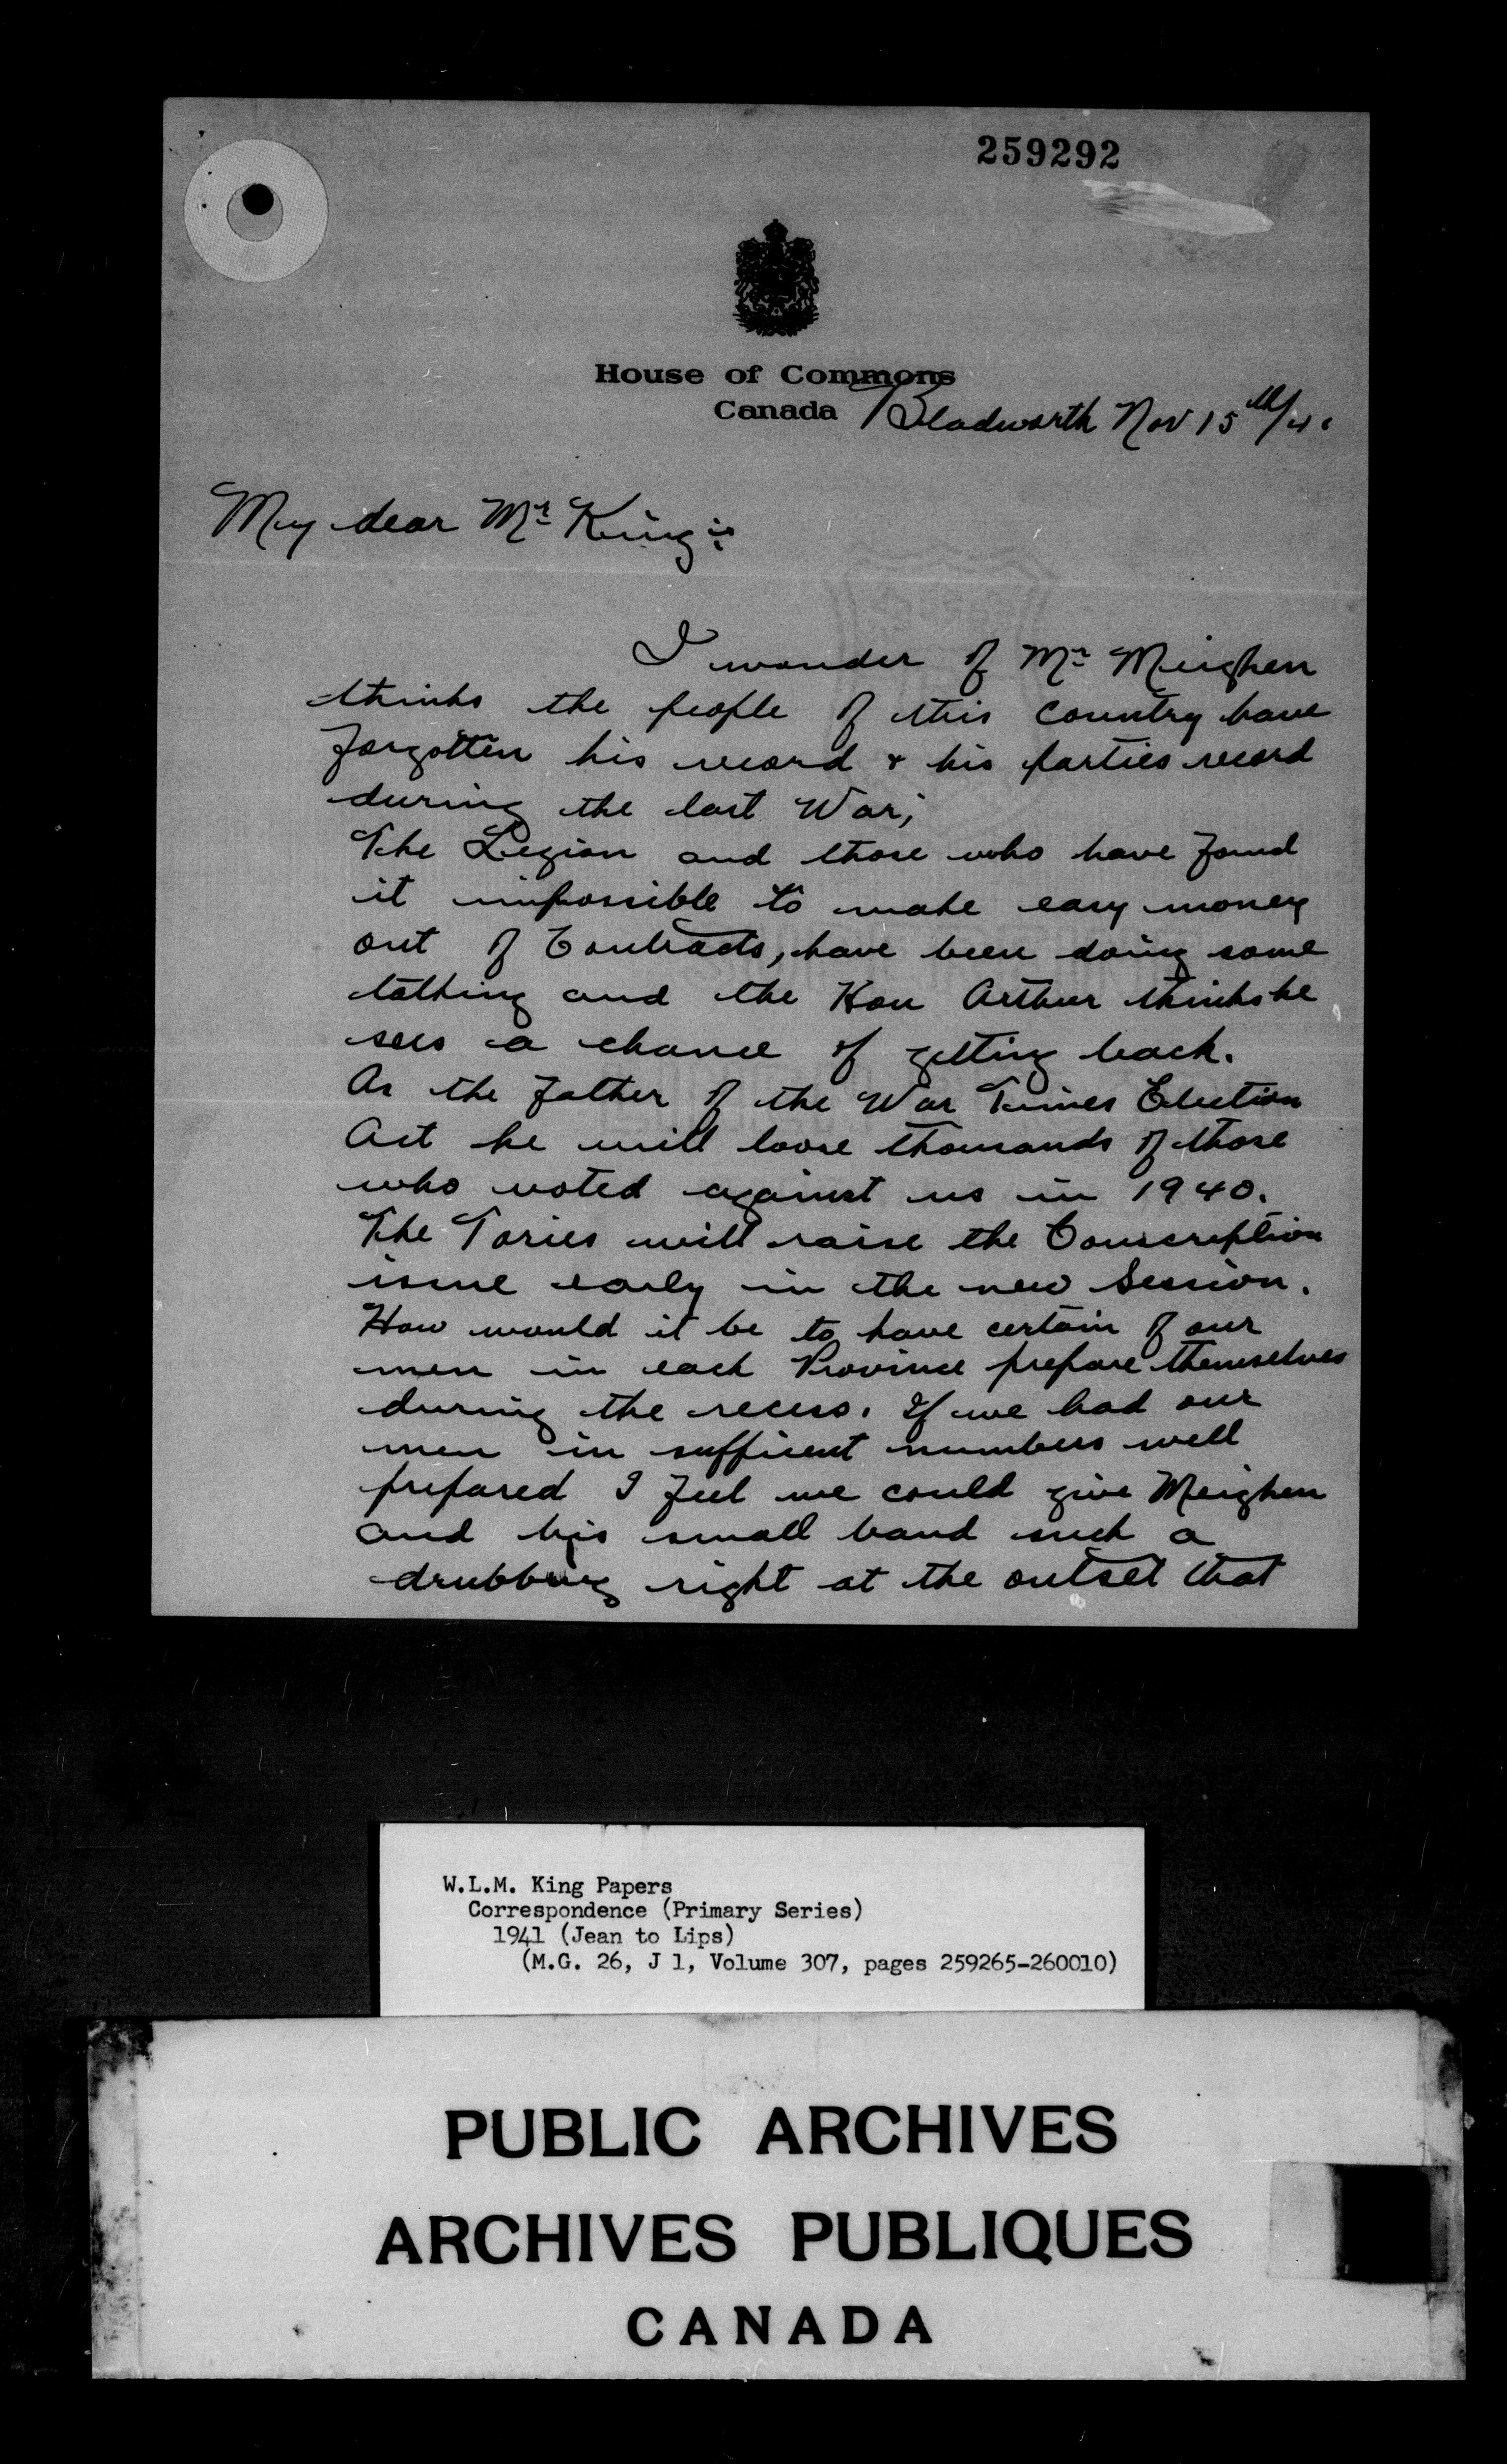 259292
House of Commons
Canada
Bladworth Nov 15th/41
My dear Mr King:
I wonder if Mr Meighen
thinks the people of this Country have
forgotten his record & his parties record
during the last War;
The Legion and those who have found
it impossible to make easy money
out of Contracts, have been doing some
talking and the Hon Arthur thinks he
sees a chance of getting back.
As the father of the War Times Election
Act he will loose thousands of those
who voted against us in 1940.
The Tories will raise the Conscription
issue early in the new Session.
How would it be to have certain of our
men in each Province prepare themselves
during the recess. If we had our
men in sufficent numbers well
prepared I feel we could give Meighen
and his small band such a
drubbing right at the outset that
W.L.M. King Papers
Correspondence (Primary Series)
1941 (Jean to Lips)
(M.G. 26, J 1, Volume 307, pages 259265-260010)
PUBLIC ARCHIVES
ARCHIVES PUBLIQUES
CANADA